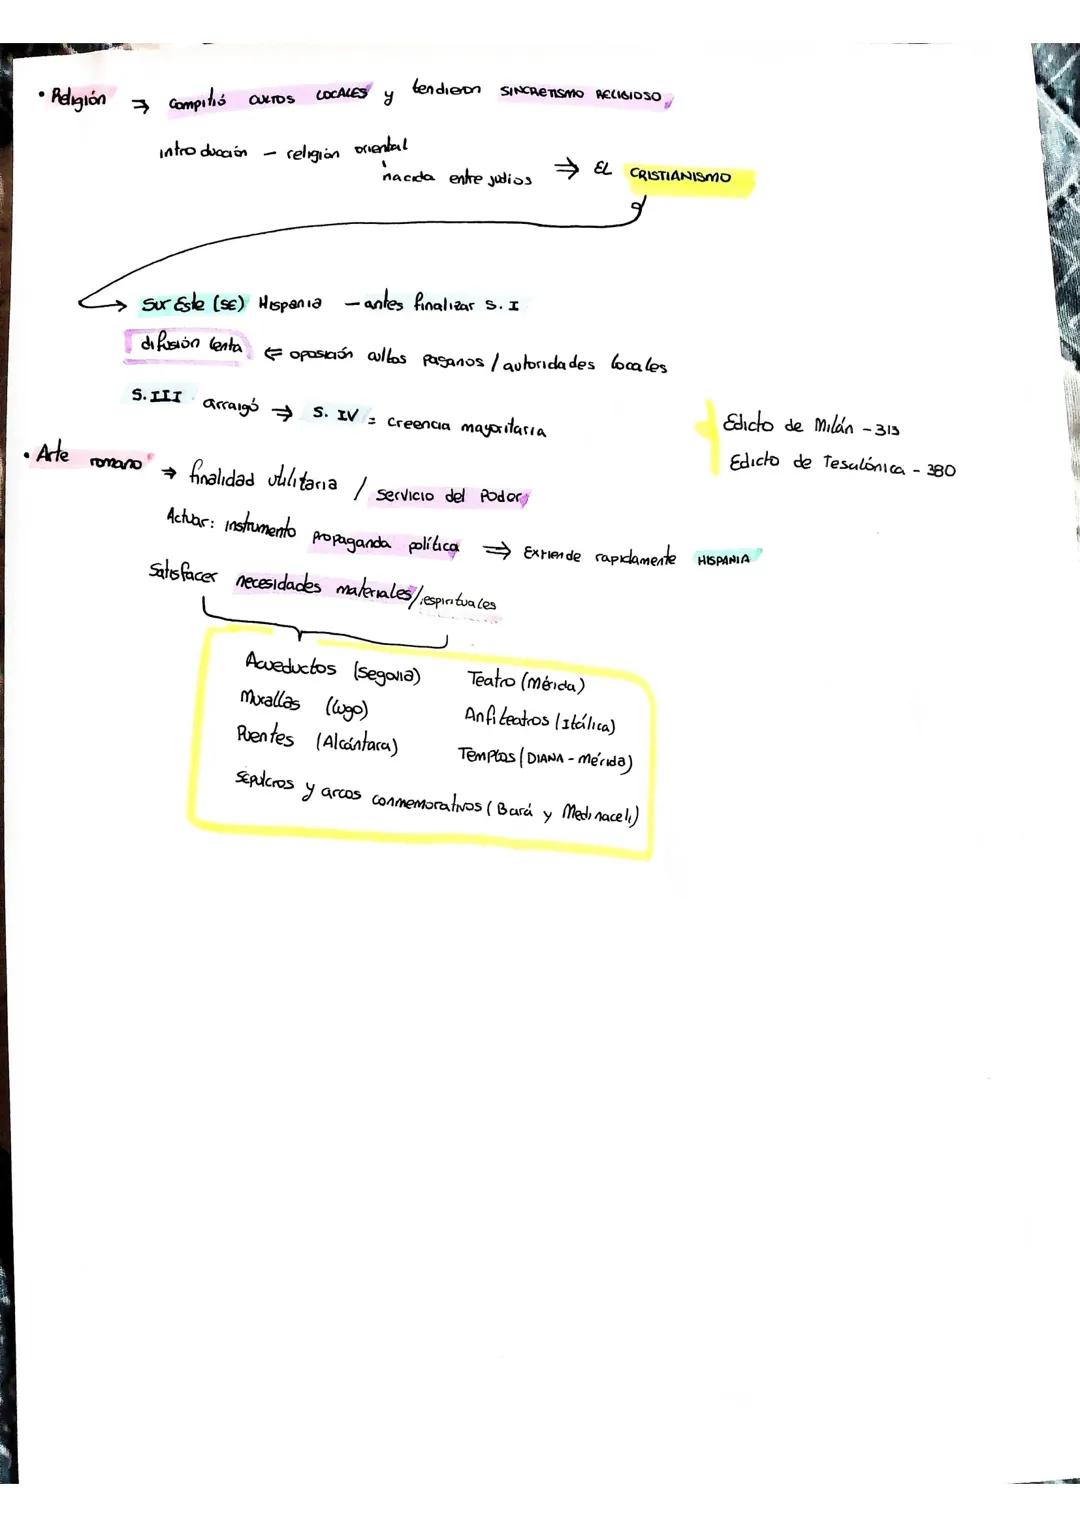 • Religión ⇒ Compitió CULTOS LOCALES y tendieron SINCRETISMO RELIGIOSO
introducción – religión oriental
nacida entre judios ⇒ EL CRISTIANISMO
→ Sur Este (SE) Hispania – antes finalizar S. I
difusión lenta ⇐ oposición cultos paganos / autoridades locales
S. III arraigó ⇒ S. IV = creencia mayoritaria
Edicto de Milán - 313
Edicto de Tesalónica - 380
• Arte romano ⇒ finalidad utilitaria / servicio del Poder
Actuar: instrumento propaganda política ⇒ Extiende rapidamente HISPANIA
Satisfacer necesidades materiales / espirituales
Acueductos (Segovia) Teatro (Mérida)
Murallas (Lugo) Anfiteatros (Itálica)
Puentes (Alcántara) Templos (DIANA - Mérida)
Sepulcros y arcos conmemorativos (Bará y Medinaceli)